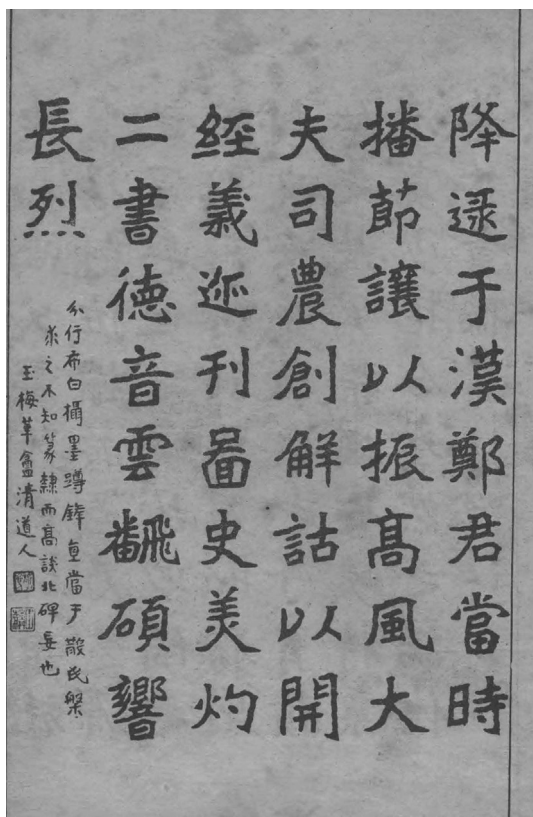 降逯于漢鄭君當時
播節讓以振高風大
夫司農創解詁以開
經義迹刊圖史美灼
二書德音雲飜碩響
長烈
分行布白攝墨蹲鋒直當于散氏槃
求之不知篆隸而高談北碑妄也
玉梅華盦清道人